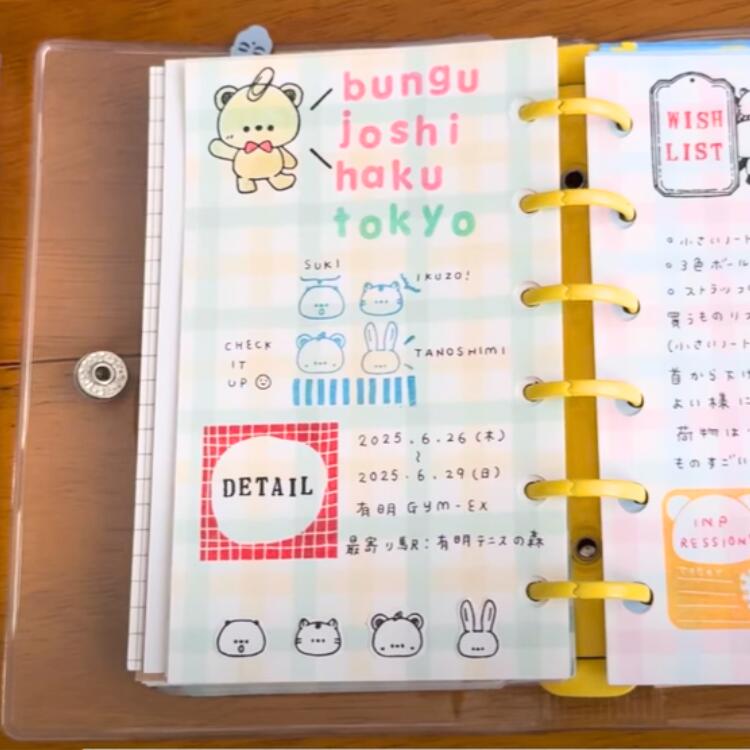 bungu
joshi
haku
tokyo
SUKI
IKUZO!
CHECK
IT
UP
TANOSHIMI
DETAIL
2025.6.26(木)
~
2025.6.29(日)
有明 GYM-EX
最寄り駅:有明テニスの森
WISH
LIST
小さいノート
3色ボール
ストラップ
買うものリス
(小さいノート
首から下げ
よい様に
荷物は
ものすごい
INP
RESSION